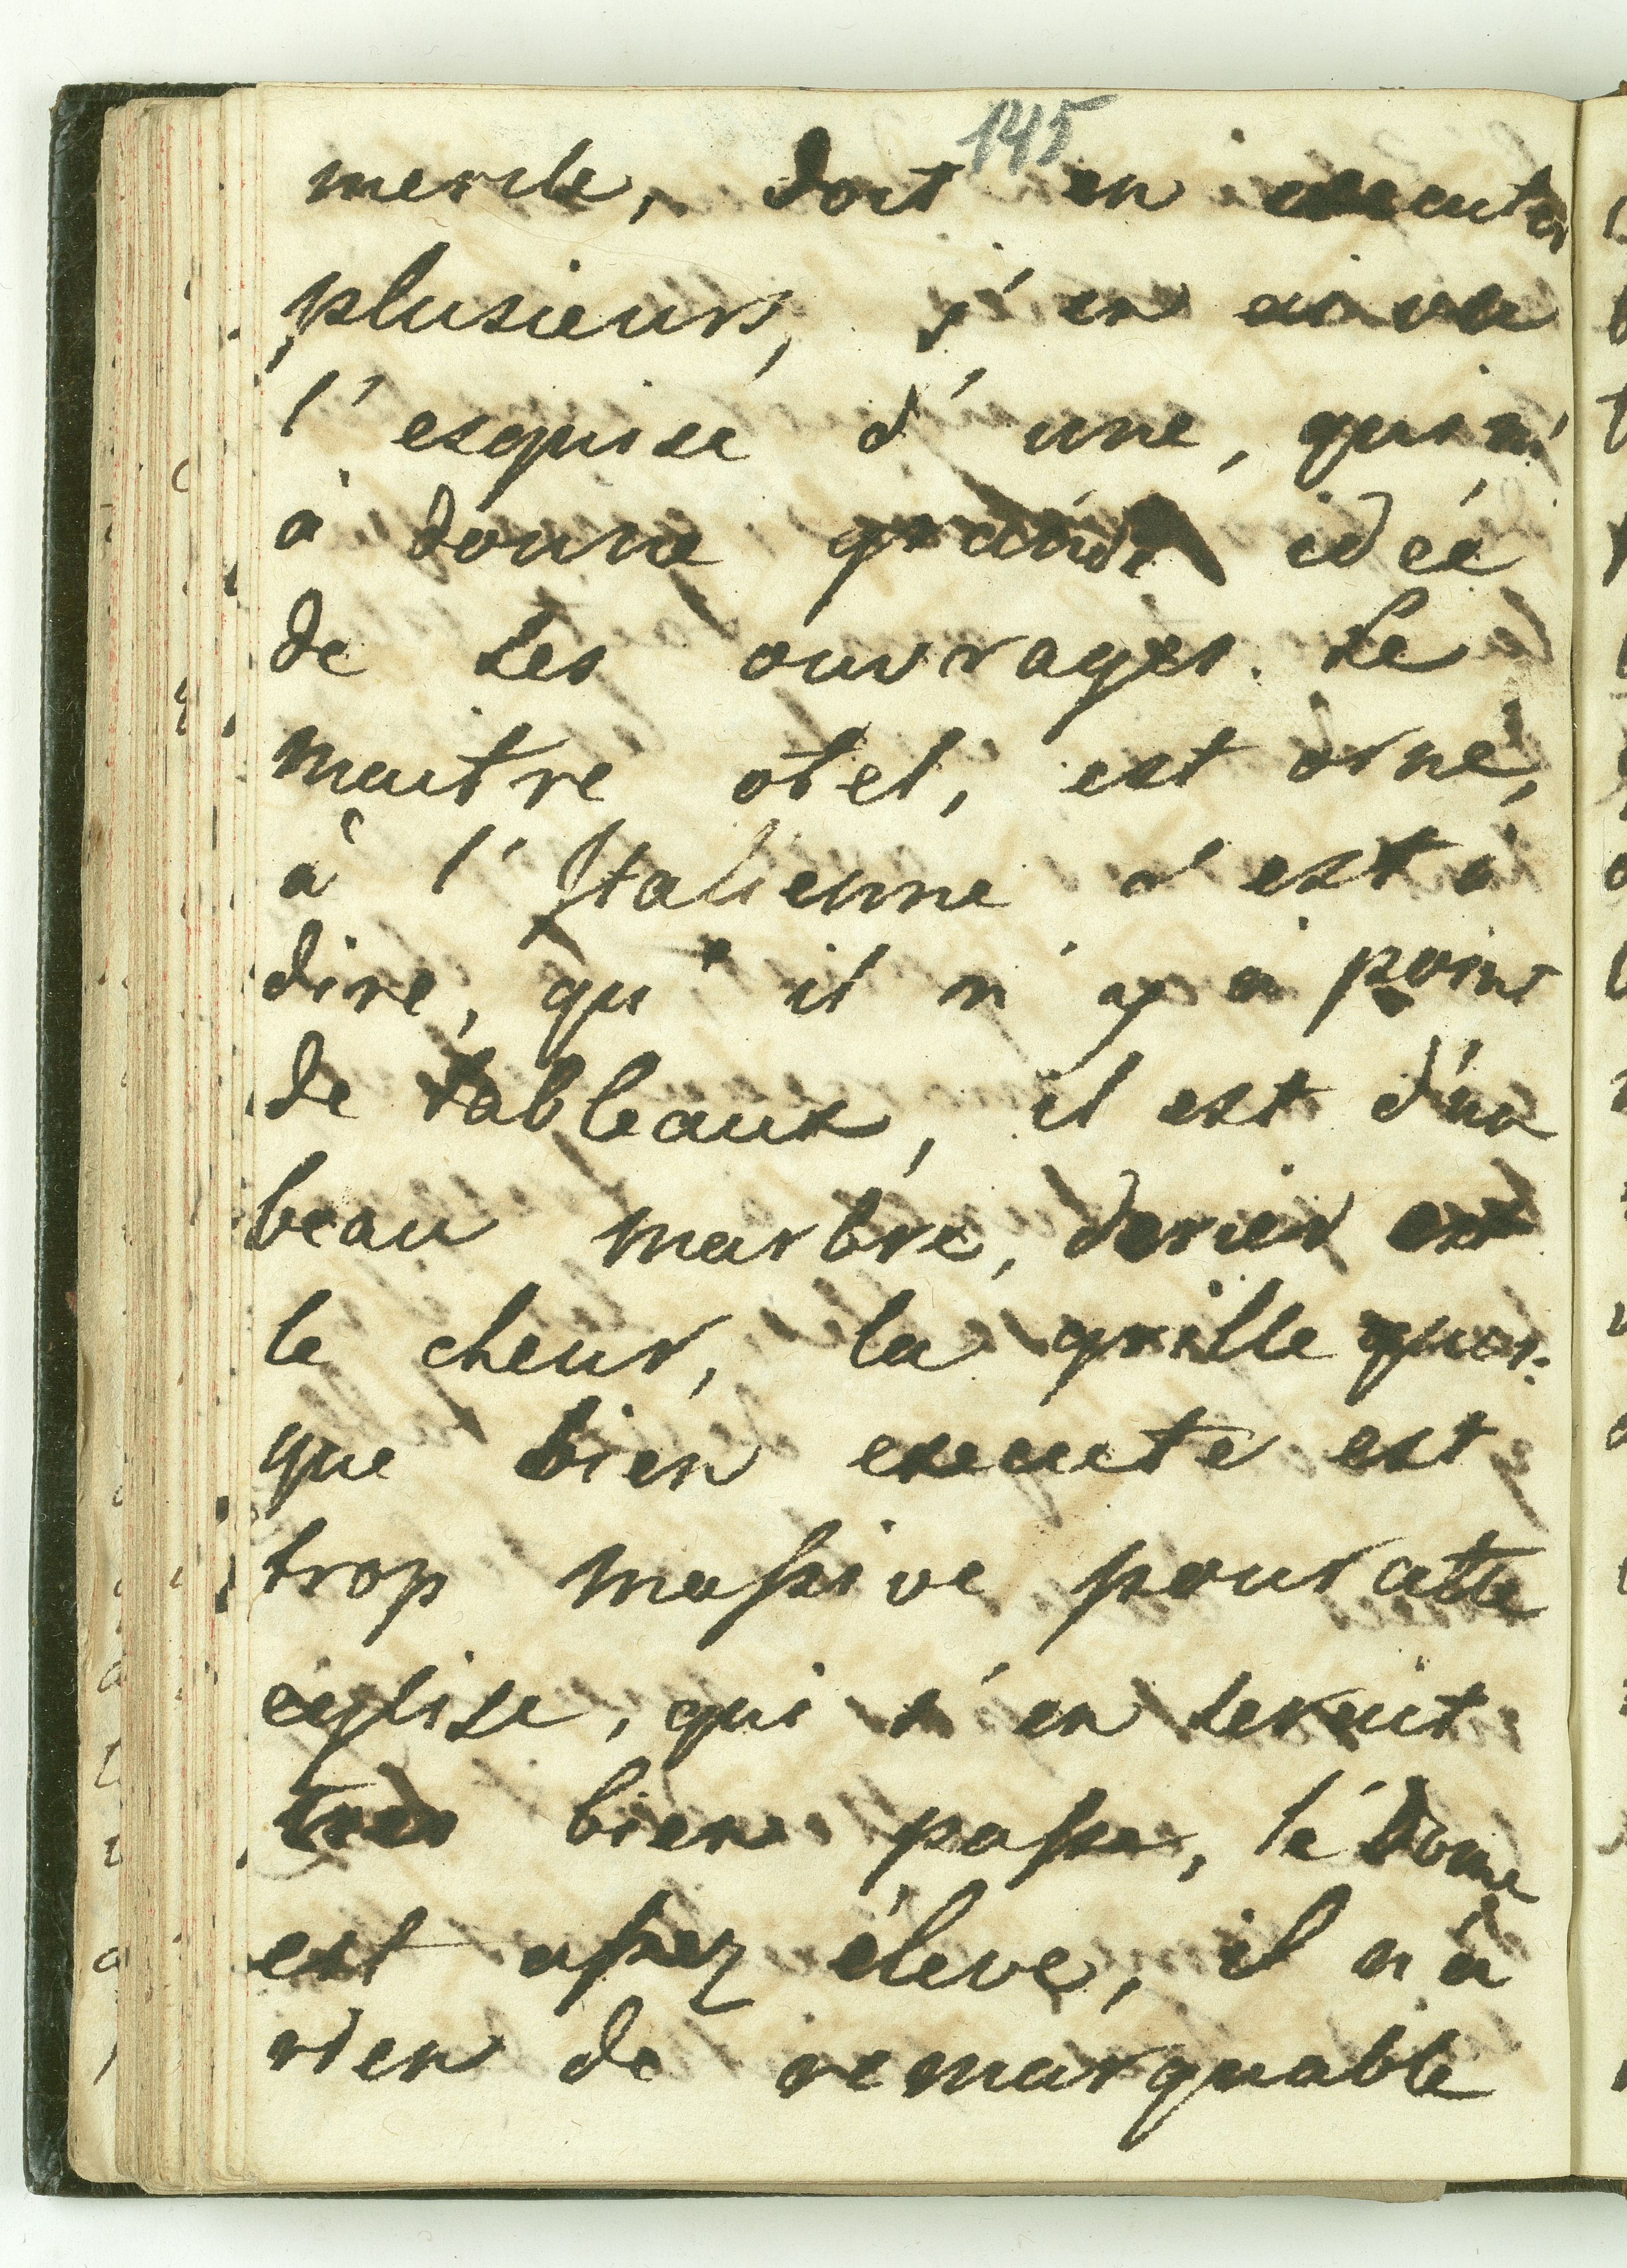 145
doit en executer
plusieurs, j'en ai vu
l'esquise d'une, qui m'
à donne grande idée
de ses ouvrages. Le
maitre otel, est orné,
à l'Italienne c'est à
dire, qu'il n'y a point
de tableaux, il est d'un
beau marbre, derier est
le cheur, la grille quoi-
que bien execute est
trop massive pour cette
église, qui s'en seroit
tres bien passe, le Dome
est assez éleve, il n'a
rien de remarquable